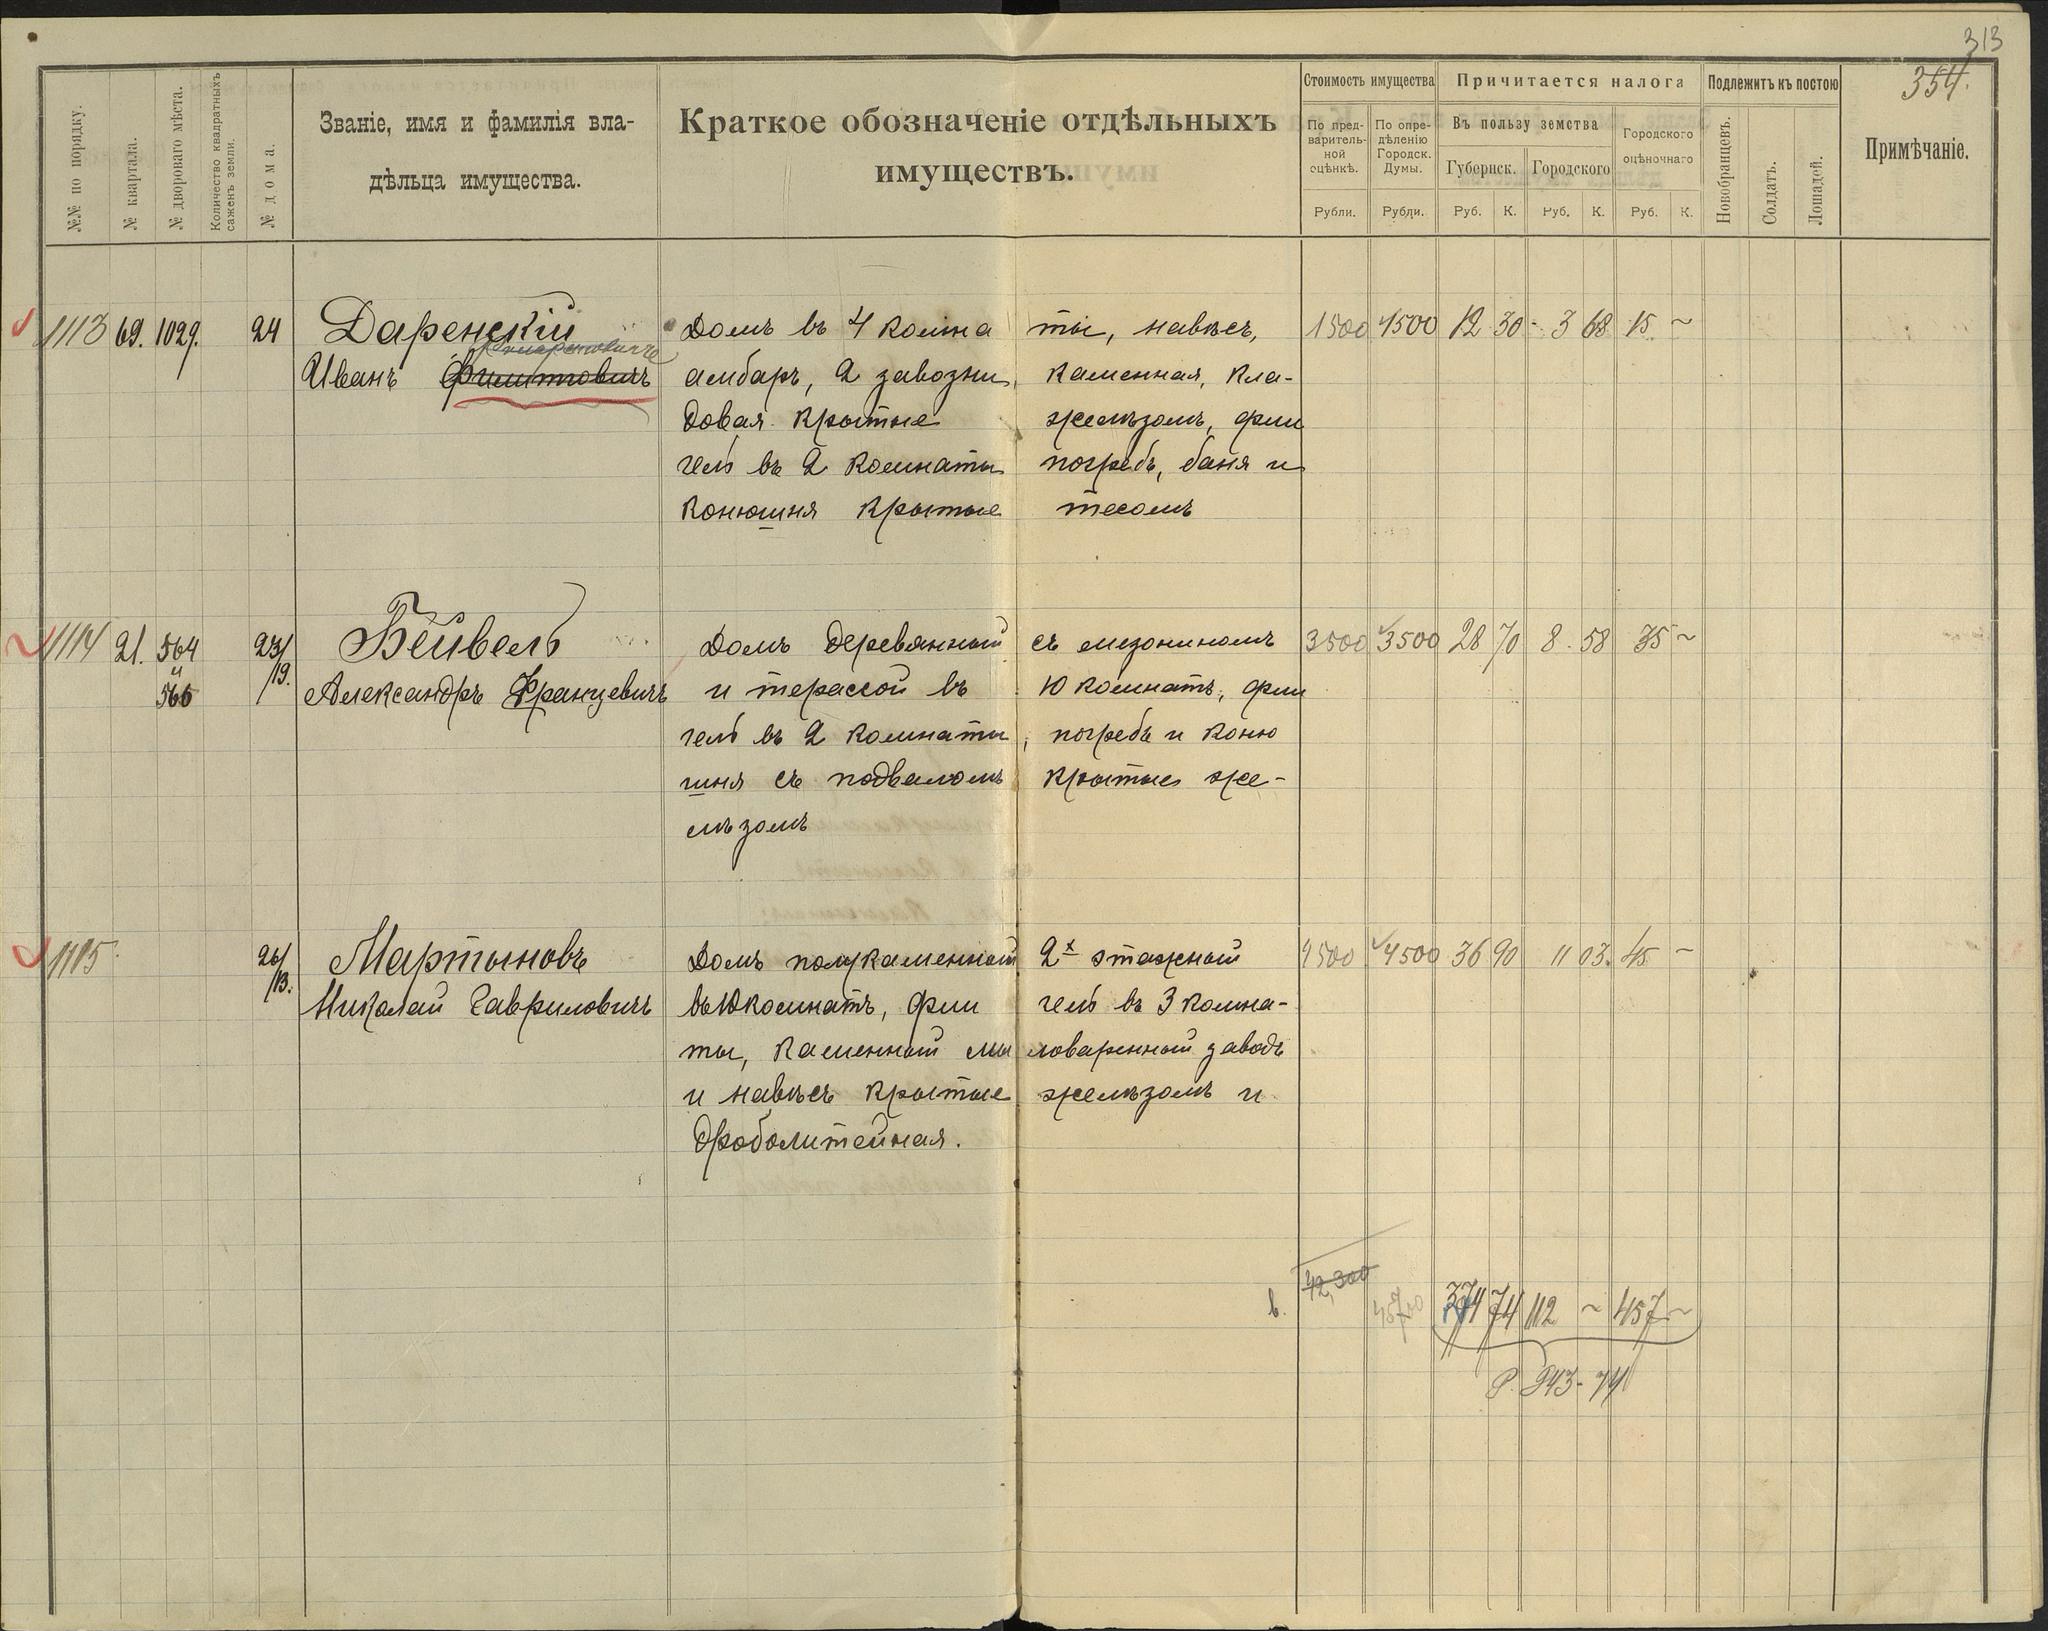 313
354.
№№ по порядку.
№ квартала.
№ двороваго мѣста.
Количество квадратныхъ саженъ земли.
№ дома.
Званіе, имя и фамилія вла-
дѣльца имущества.
Краткое обозначеніе отдѣльныхъ
имуществъ.
Стоимость имущества
По пред-
варитель-
ной
оцѣнкѣ.
По опре-
дѣленію
Городск.
Думы.
Рубли. Рубли.
Причитается налога
Въ пользу земства
Губернск. Городского
Городского
оцѣночнаго
Руб. К. Руб. К. Руб. К.
Подлежитъ къ постою
Новобранцевъ.
Солдатъ.
Лошадей.
Примѣчаніе.
1113 69. 1029. 24 Даренскій Домъ въ 4 комна ты, навѣсъ, 1500 1500 12 30 - 3 68 15 ~
Иванъ амбаръ, 2 завозни, каменная, кла-
довая крытые желѣзомъ, фли
гель въ 2 комнаты погребъ, баня и
конюшня крытые тесомъ
1114 21. 564 23/19. Бейвель Домъ деревянный съ мезониномъ 3500 3500 28 70 8 58 35 ~
и 566 Александръ Францевичъ и терассой въ 10 комнатъ, фли
гель въ 2 комнаты, погребъ и коню
шня съ подваломъ крытые же-
лѣзомъ
1115 26/13. Мартыновъ Домъ полукаменный 2х этажный 4500 4500 36 90 11 03 45 ~
Николай Гавриловичъ въ 10 комнатъ, фли гель въ 3 комна-
ты, каменный мы ловаренный заводъ
и навѣсъ крытые желѣзомъ и
дроболитейная.
42,300
в. 45700 374 74 112 ~ 457 ~
Р. 943-74